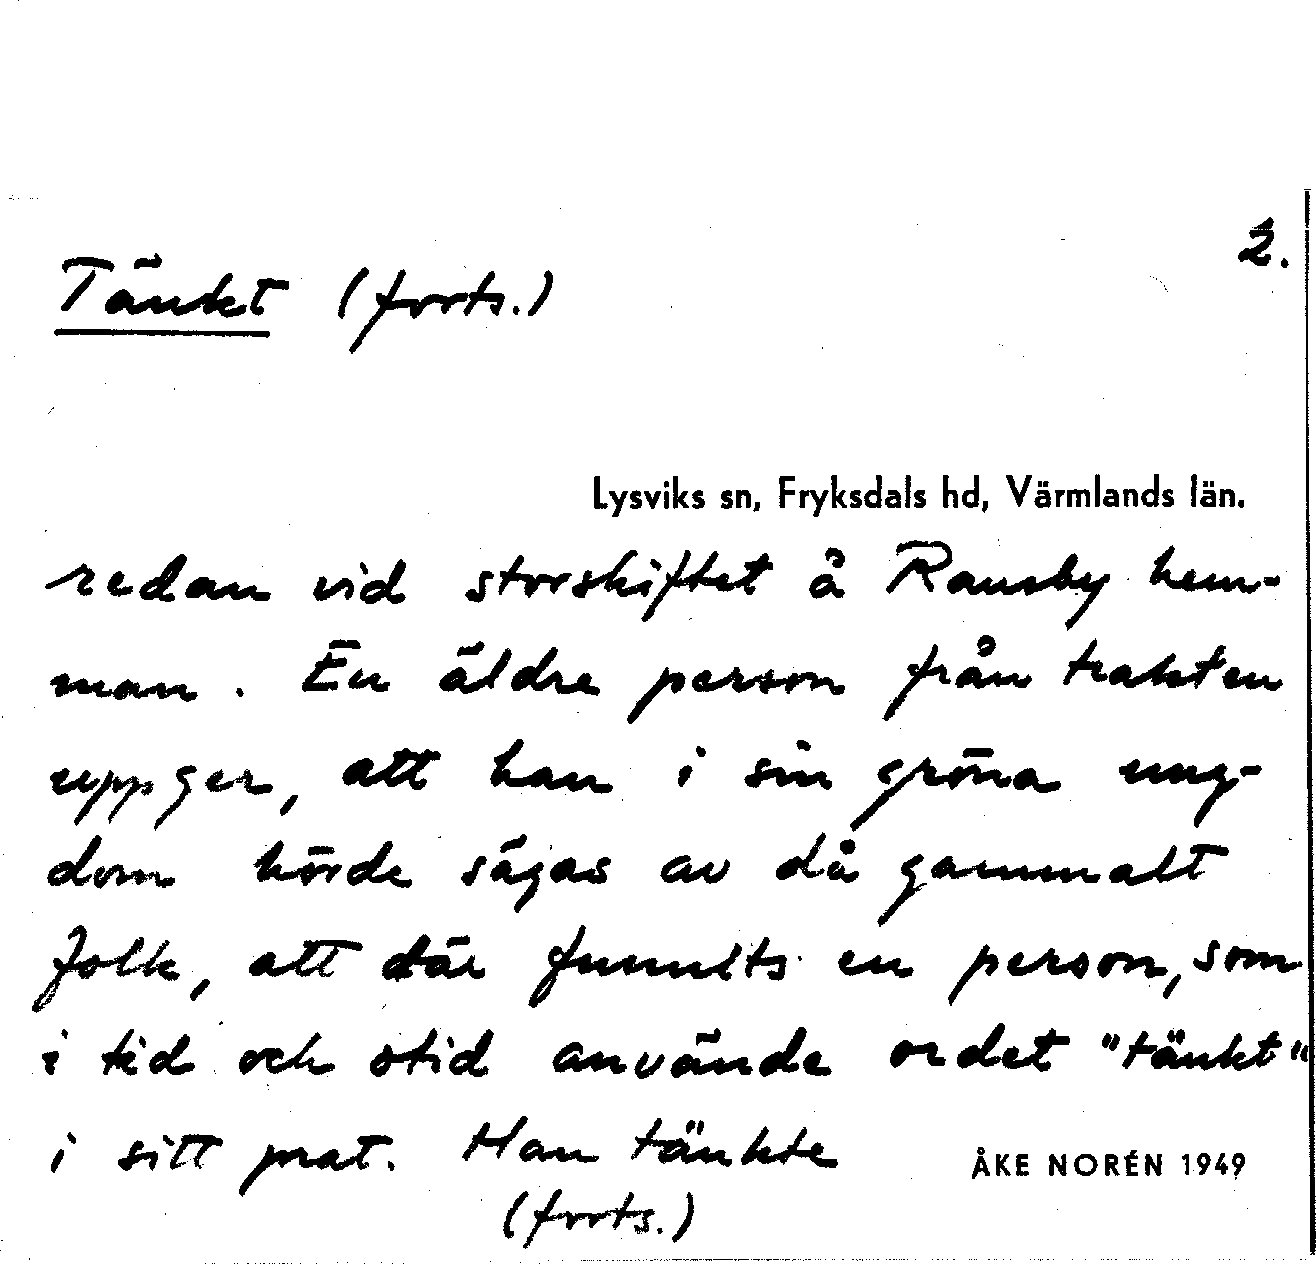 2.
Tänkt (forts.)
Lysviks sn, Fryksdals hd, Värmlands län.
redan vid storskiftet å Ransby hem-
man. En äldre person från trakten
uppger, att han i sin gröna ung-
dom hörde sägas av då gammalt
folk, att där funnits en person, som
i tid och otid använde ordet "tänkt"
i sitt prat. Han tänkte
ÅKE NORÉN 1949
(forts.)